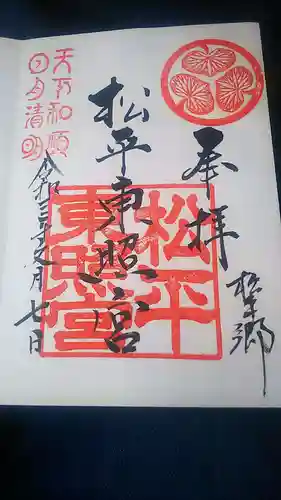 奉拝
松平郷
松平東照宮
松平
東照宮
天下和順
日月清明
令和三年
月七日